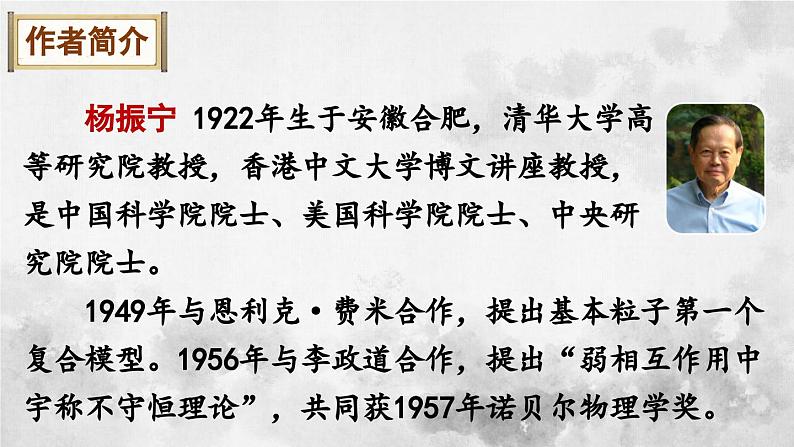 作者简介
杨振宁 1922年生于安徽合肥，清华大学高
等研究院教授，香港中文大学博文讲座教授，
是中国科学院院士、美国科学院院士、中央研
究院院士。
1949年与恩利克·费米合作，提出基本粒子第一个
复合模型。1956年与李政道合作，提出“弱相互作用中
宇称不守恒理论”，共同获1957年诺贝尔物理学奖。